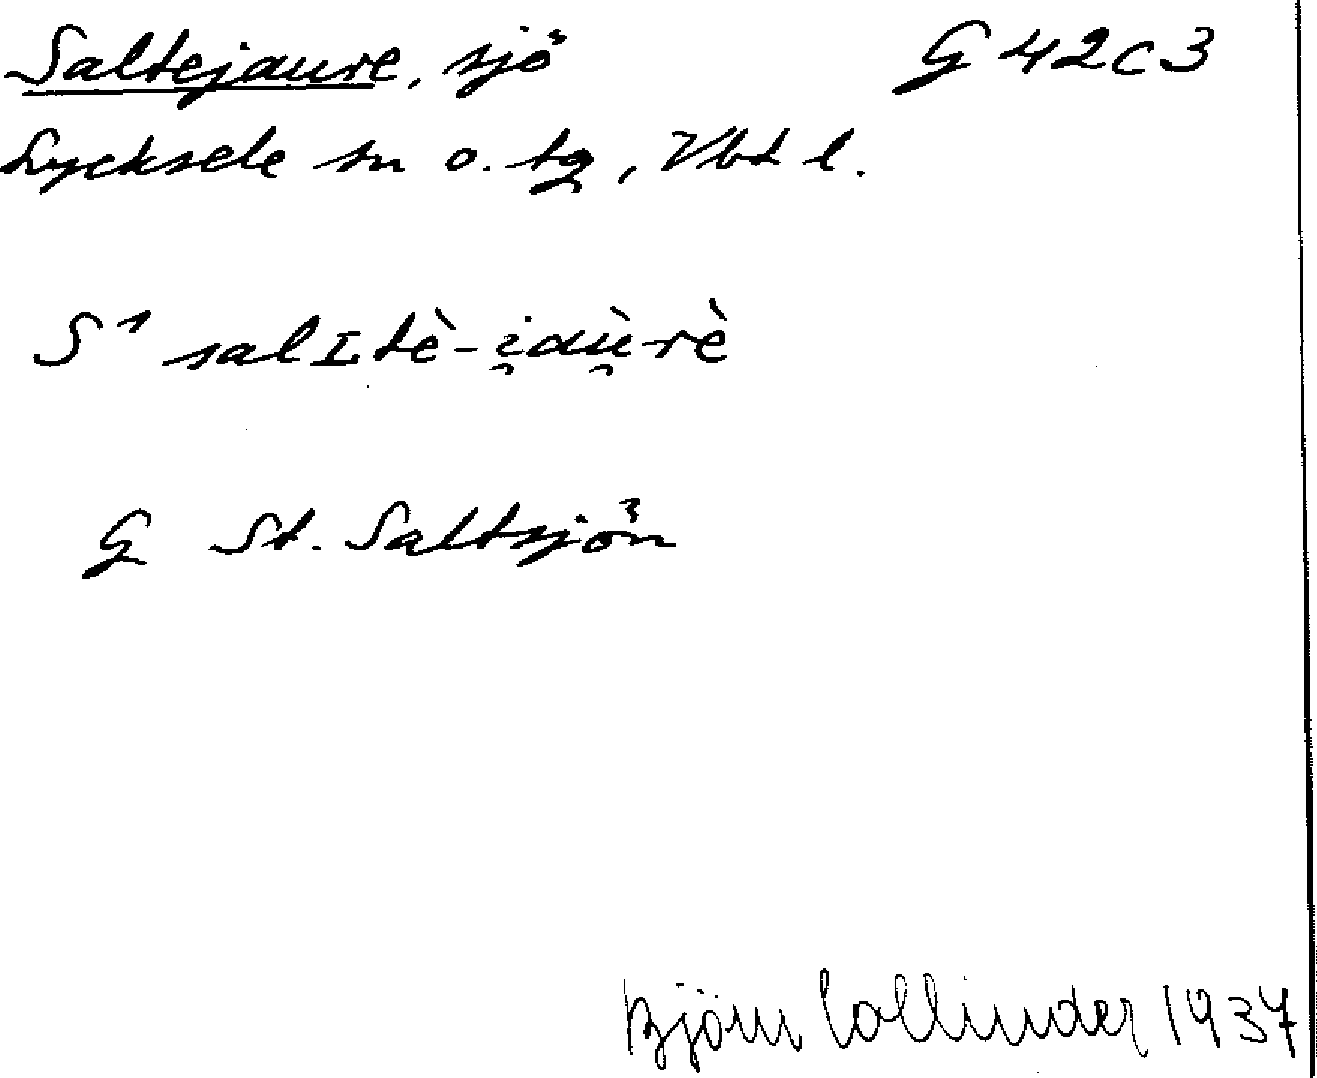 Saltejaure, sjö G 42c3
Lycksele sn o. tg, Vbt l.
S¹ salɪtè-i̯aù̯rè
G St. Saltsjön
Björn Collinder 1937